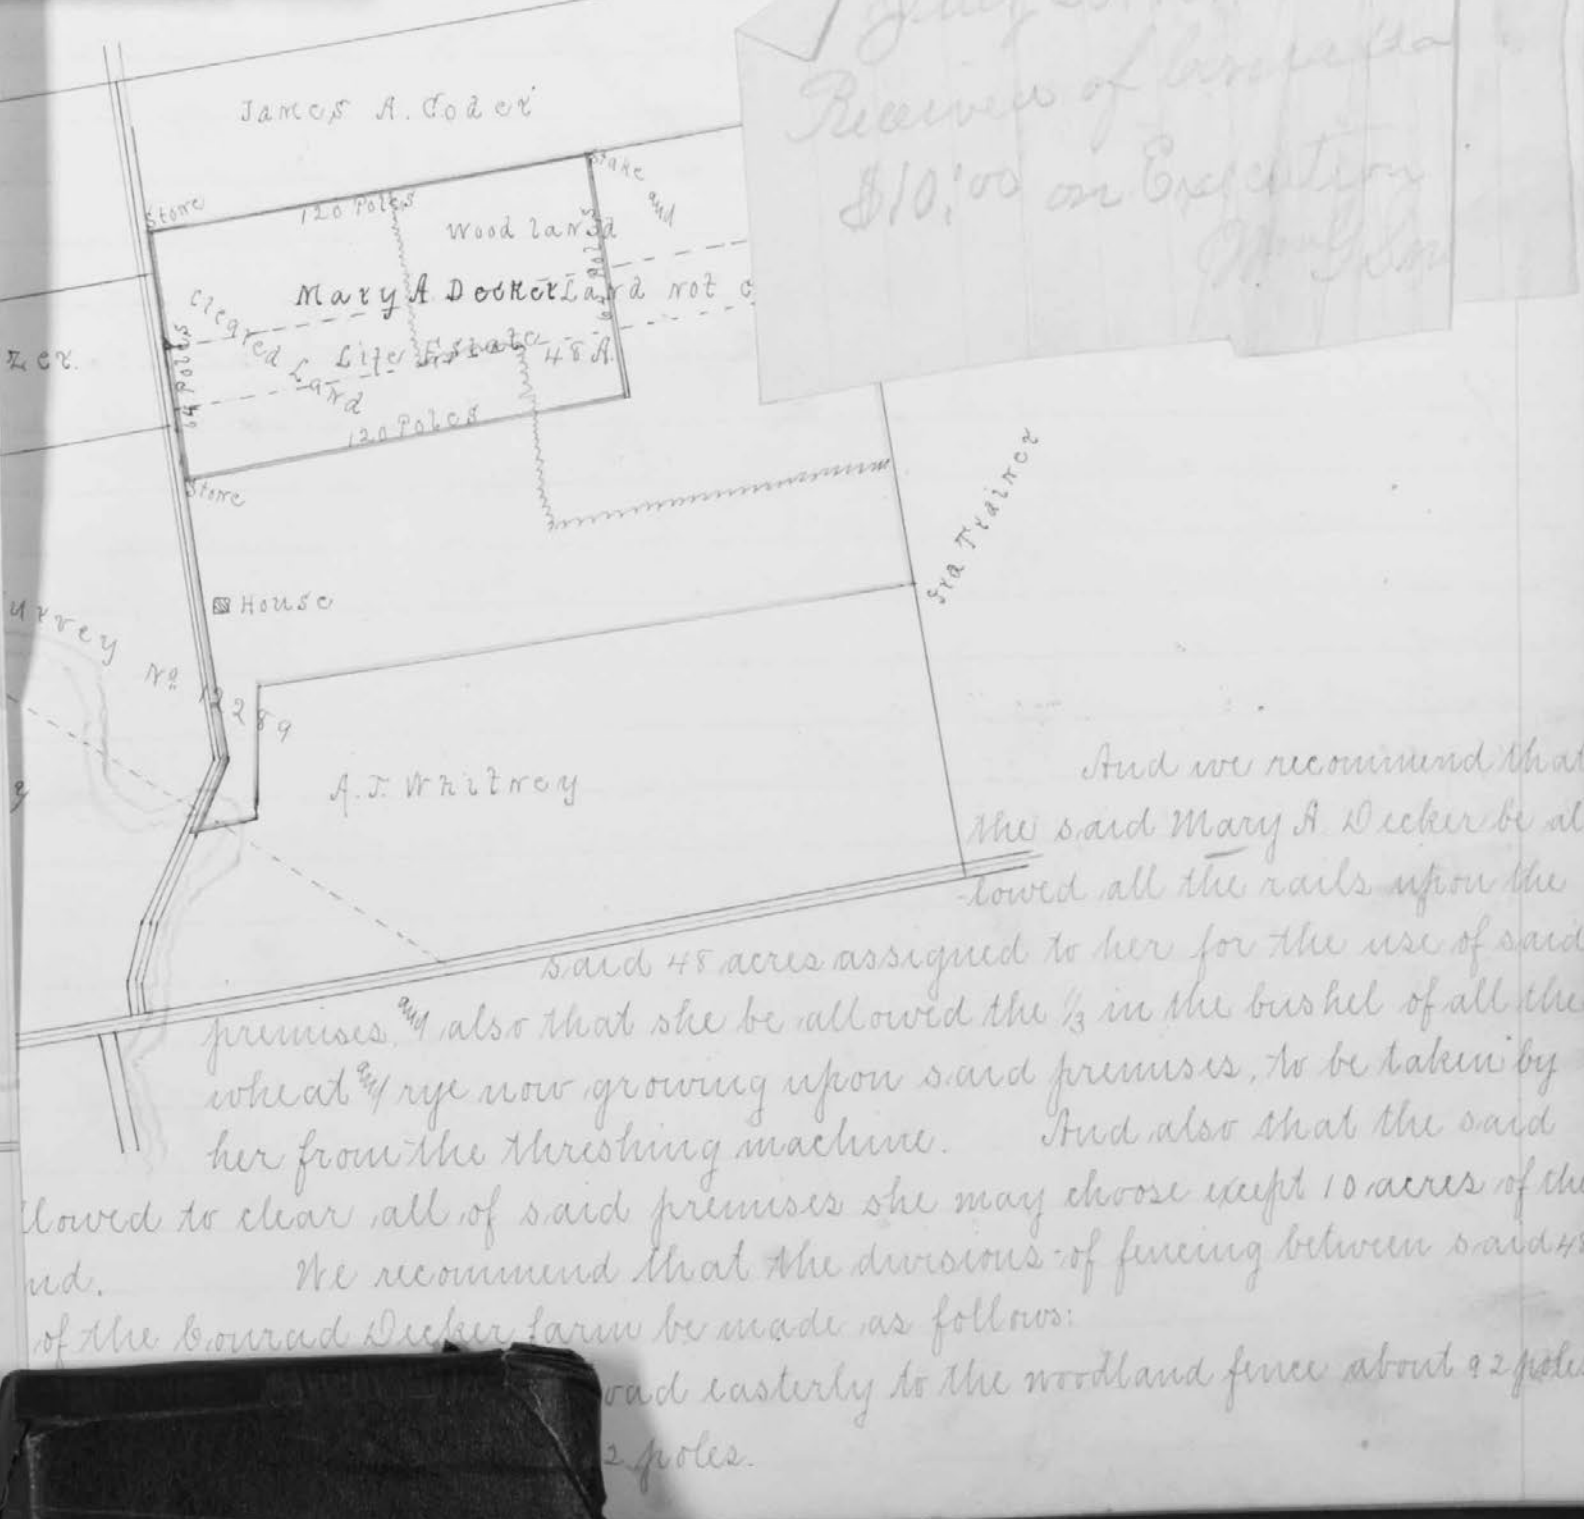 Received of
$10.00 on Execution
James A. Coder
Stone
120 Poles
Stake
and
Wood land
Cleared Land
Mary A Decker
Land not
Life Estate
48 A.
64 Poles
64 Poles
120 Poles
Stone
zer.
House
Ira Trainer
urvey No 12289
A. T. Whitney
And we recommend that
the said Mary A Decker be al
lowed all the rails upon the
said 48 acres assigned to her for the use of said
premises, and also that she be allowed the 1/3 in the bushel of all the
wheat and rye now growing upon said premises, to be taken by
her from the threshing machine. And also that the said
llowed to clear all of said premises she may choose except 10 acres of the
nd. We recommend that the divisions of fencing between said 48
of the Conrad Decker farm be made as follows:
oad easterly to the woodland fence about 92 poles
2 poles.